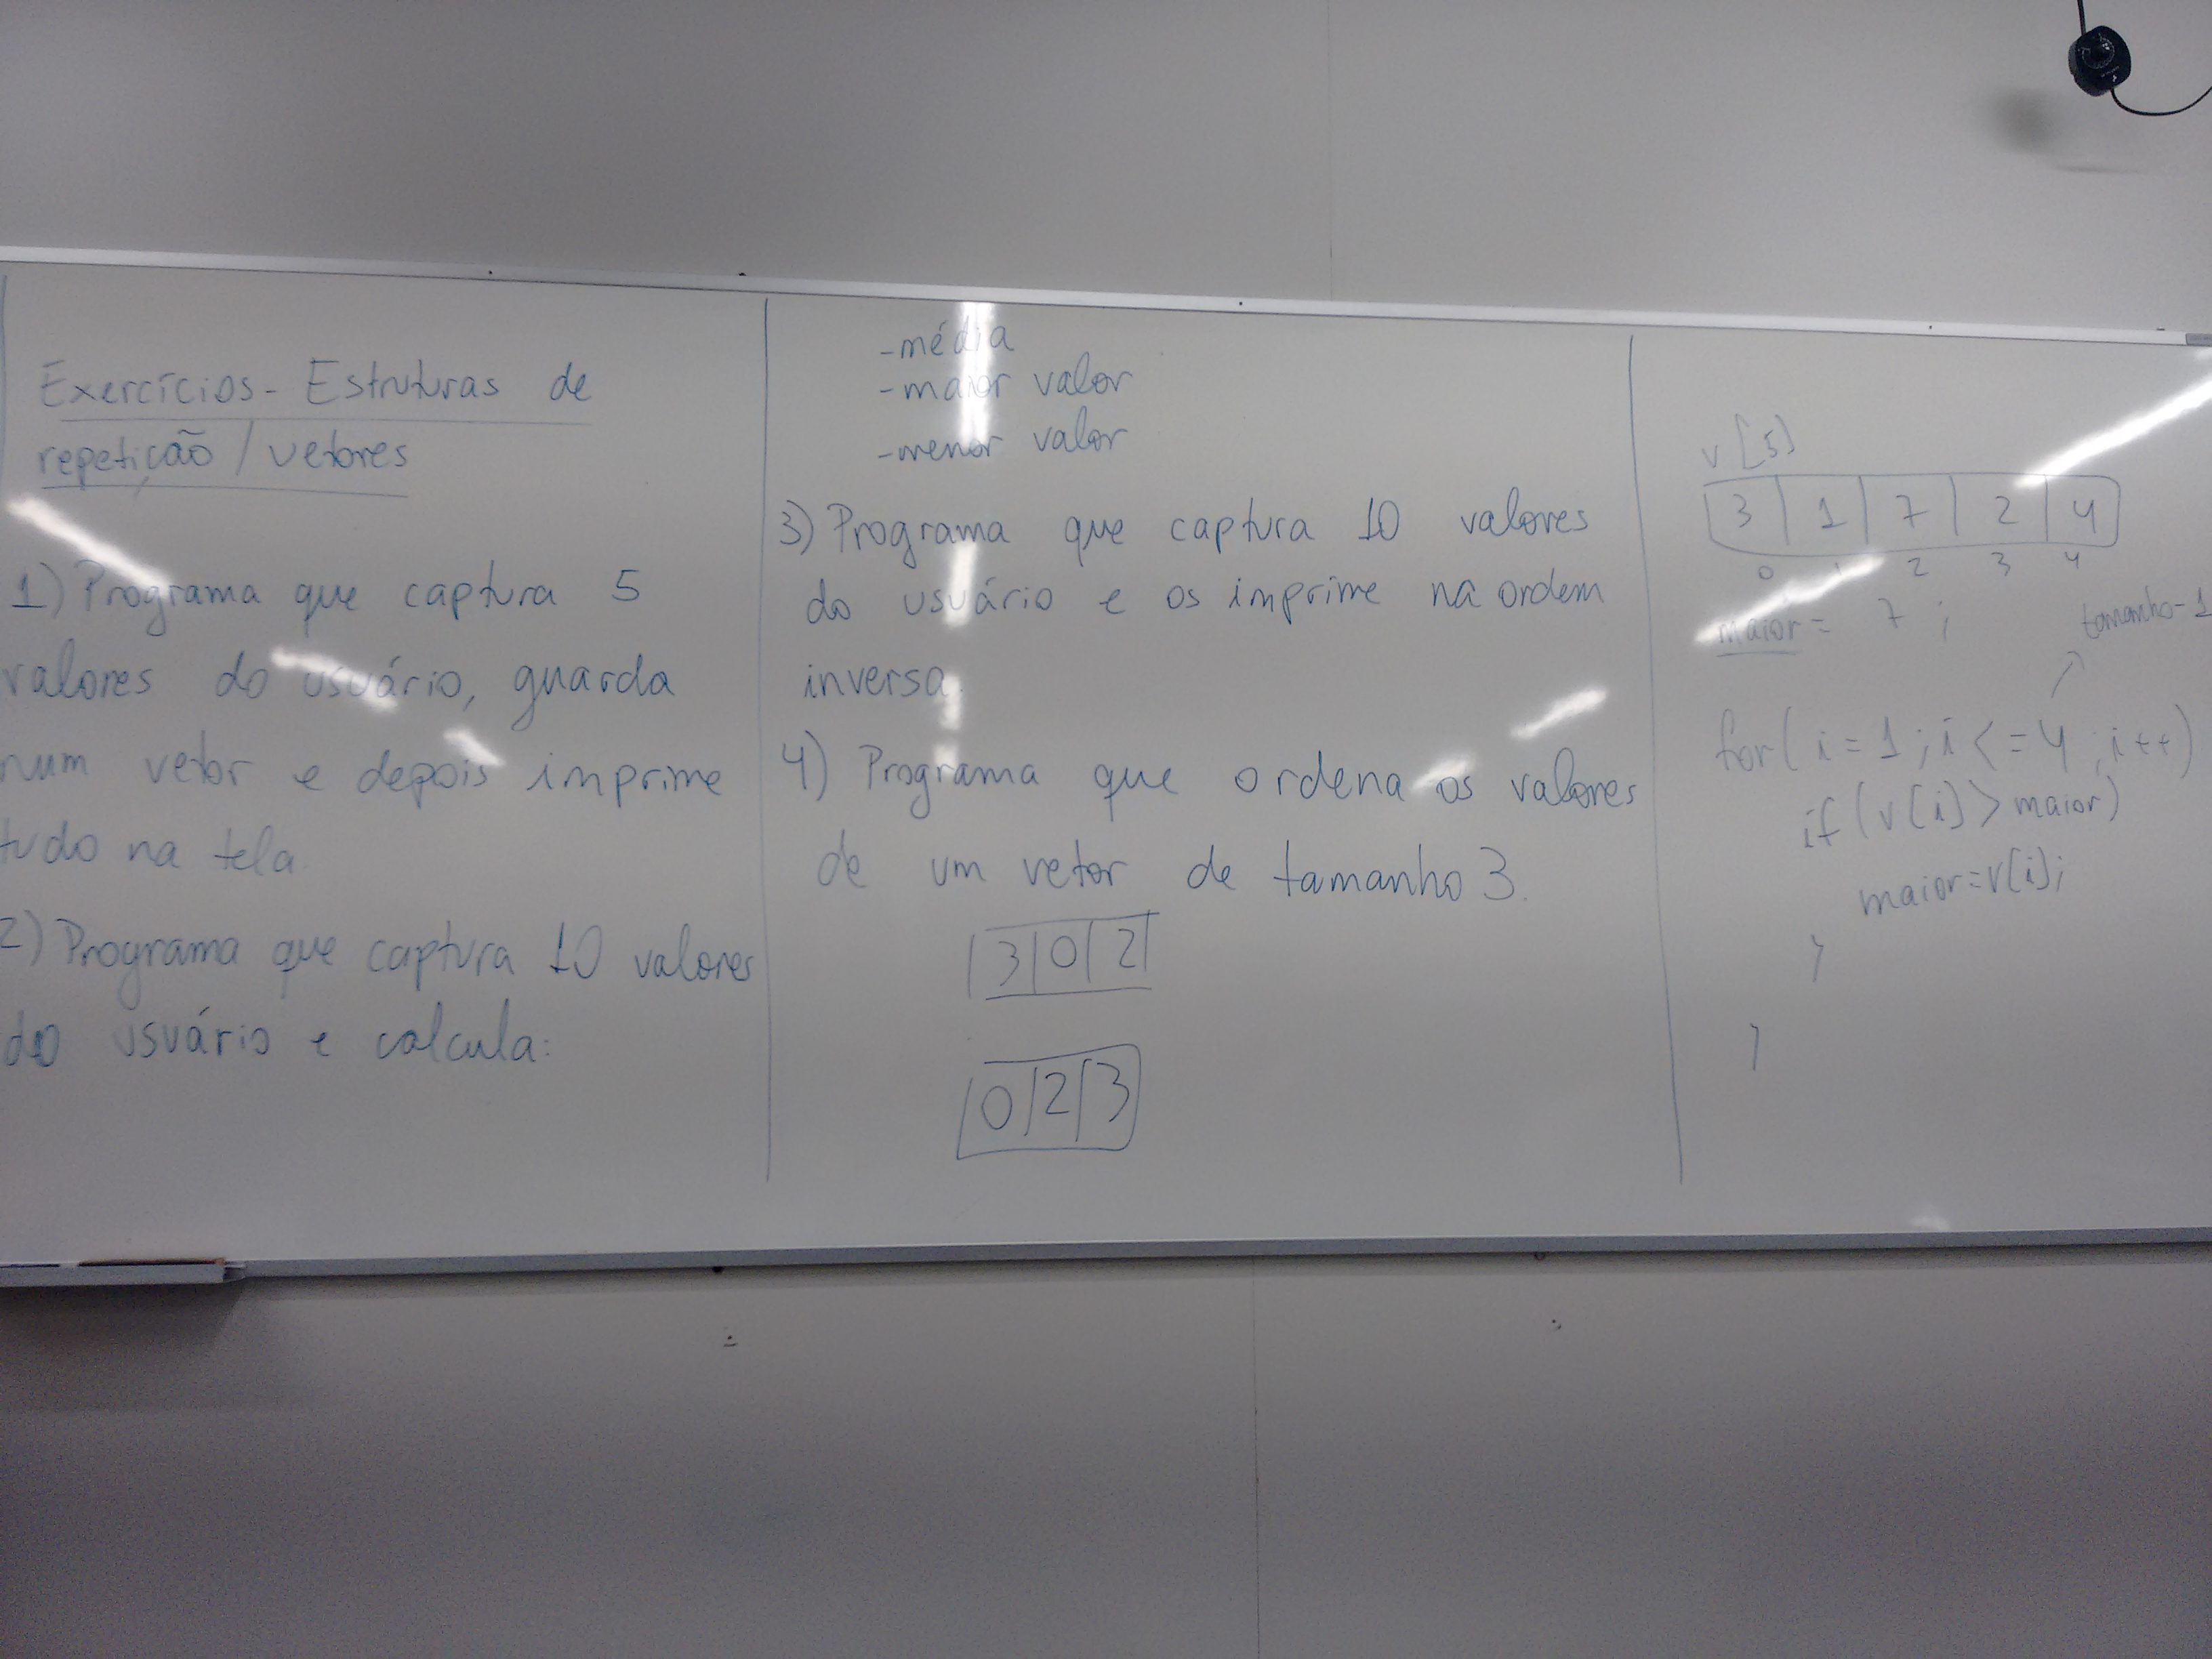 Exercícios - Estruturas de
repetição / vetores
1) Programa que captura 5
valores do usuário, guarda
num vetor e depois imprime
tudo na tela.
2) Programa que captura 10 valores
do usuário e calcula:
- média
- maior valor
- menor valor
3) Programa que captura 10 valores
do usuário e os imprime na ordem
inversa.
4) Programa que ordena os valores
de um vetor de tamanho 3.
3 | 0 | 2
0 | 2 | 3
v[5]
3 | 1 | 7 | 2 | 4
0 1 2 3 4
maior = 7 ;
tamanho-1
for( i = 1 ; i <= 4 ; i++)
if (v[i] > maior)
maior = v[i];
}
}